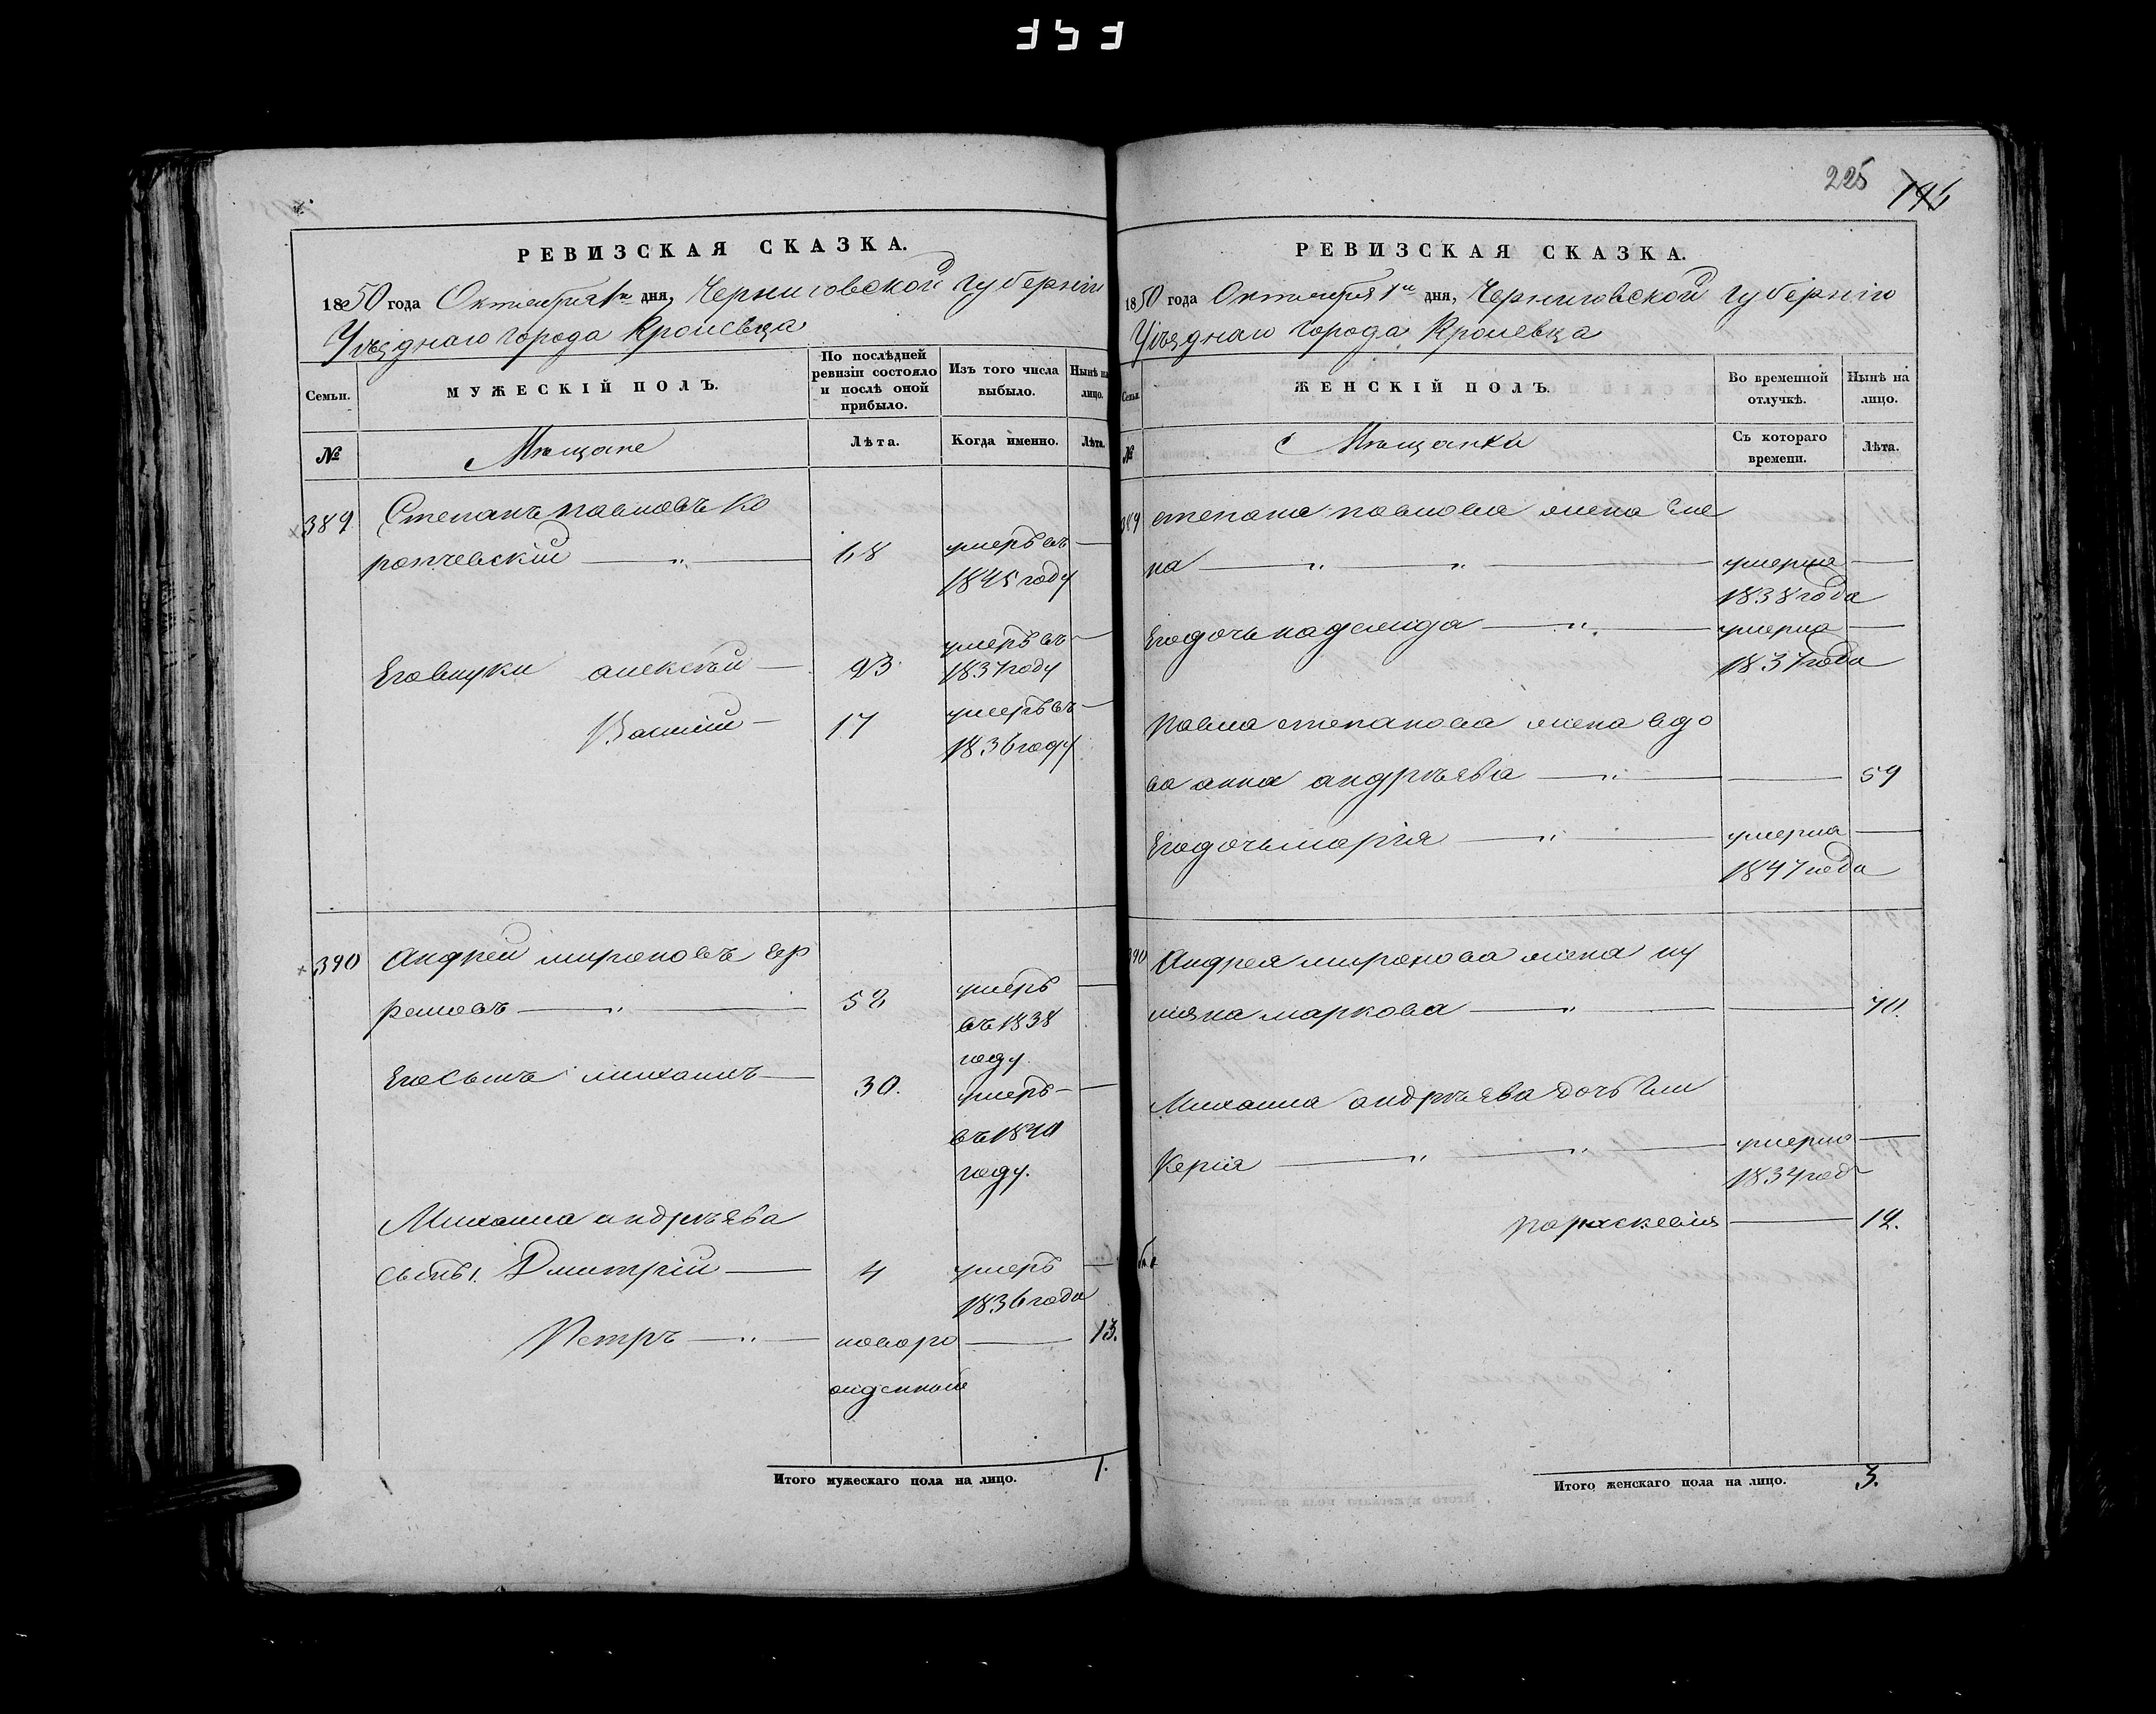 353
РЕВИЗСКАЯ СКАЗКА.
1850 года Октября 1го дня, Черниговской губернии
Уѣзднаго города Кролевца
Семьи.
МУЖЕСКІЙ ПОЛЪ.
По послѣдней ревизіи состояло и послѣ оной прибыло.
Изъ того числа выбыло.
Нынѣ на лицо.
№
Мѣщане
Лѣта.
Когда именно.
Лѣта.
389 Степанъ павловъ Ко
ропчевскій — " — 68 умеръ въ —
1845 году
Его внуки алексѣй — 23 умеръ въ —
1837 году
Василій — 17 умеръ въ —
1836 году
390 Андрей мироновъ
— " — 52 умеръ —
въ 1838
году
Его Сынъ михаилъ — 30. умеръ —
въ 1840
году.
Михаила андрѣева
сынъ 1. Дмитрій — 4 умеръ —
1836 года
Петръ — " — новоро — 13.
жденный
Итого мужескаго пола на лицо. 1.
225 146
РЕВИЗСКАЯ СКАЗКА.
1850 года Октября 1го дня, Черниговской губернии
Уѣзднаго города Кролевца
Семьи.
ЖЕНСКІЙ ПОЛЪ.
Во временной отлучкѣ.
Нынѣ на лицо.
№
Мѣщанки
Съ котораго времени.
Лѣта.
389 степана павлова жена еле
на — " — " — умерла —
1838 года
Его дочь надежда — " — умерла —
1837 года
Павла степанова жена вдо
ва анна андрѣева — " — — 59
Его дочь марія — " — умерла —
1847 года
390 Андрея миронова жена иу
лияна маркова — " — — 70.
Михаила андрѣева дочь Гли
керія — " — " — умерла —
1834 год
параскевия — 12.
Итого женскаго пола на лицо. 3.